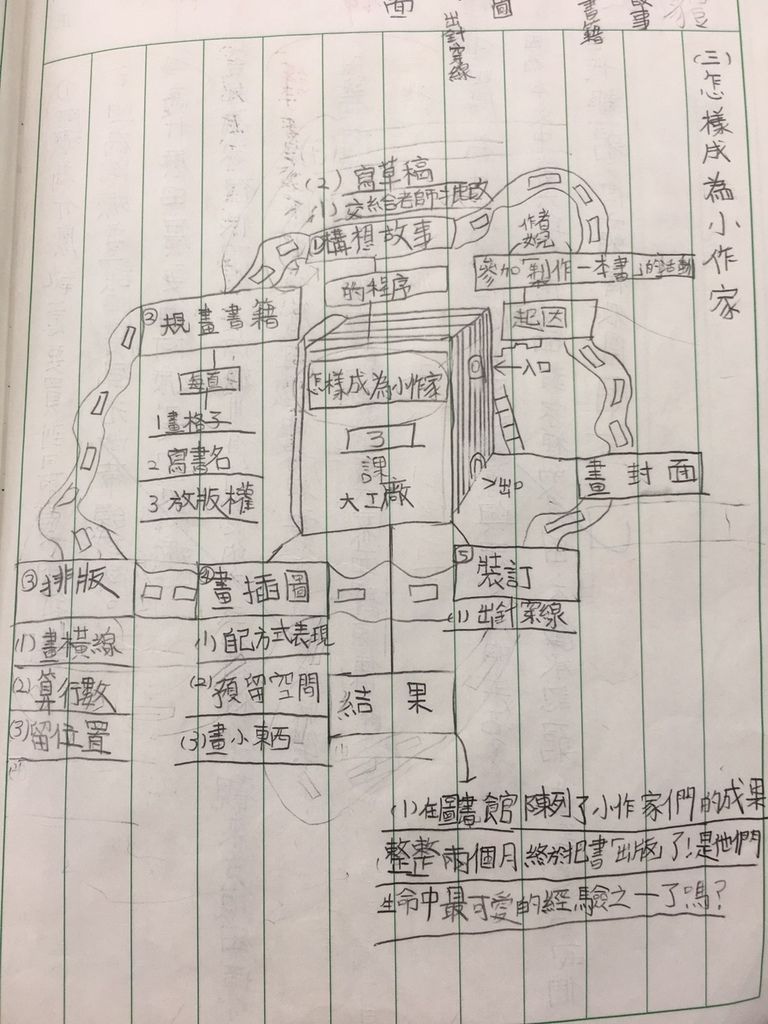 面
出針穿線
圖
書籍
故事
(三)怎樣成為小作家
(2)寫草稿
(1)交給老師批改
①構想故事
的程序
作者
參加「製作一本書」的活動
起因
入口
②規畫書籍
每頁
1畫格子
2寫書名
3放版權
怎樣成為小作家
3
課
大工廠
出口
畫封面
③排版
(1)畫橫線
(2)算行數
(3)留位置
④畫插圖
(1)自己方式表現
(2)預留空間
(3)畫小東西
⑤裝訂
(1)出針穿線
結果
(1)在圖書館陳列了小作家們的成果
整整兩個月終於把書「出版」了!是他們
生命中最可愛的經驗之一了嗎?